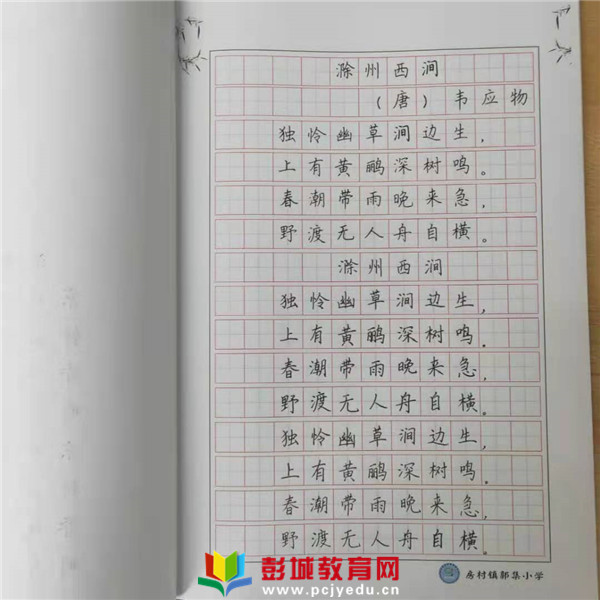 滁州西涧
（唐）韦应物
独怜幽草涧边生，
上有黄鹂深树鸣。
春潮带雨晚来急，
野渡无人舟自横。
滁州西涧
独怜幽草涧边生，
上有黄鹂深树鸣。
春潮带雨晚来急，
野渡无人舟自横。
独怜幽草涧边生，
上有黄鹂深树鸣。
春潮带雨晚来急，
野渡无人舟自横。
彭城教育网
www.pcjyedu.cn
房村镇郭集小学